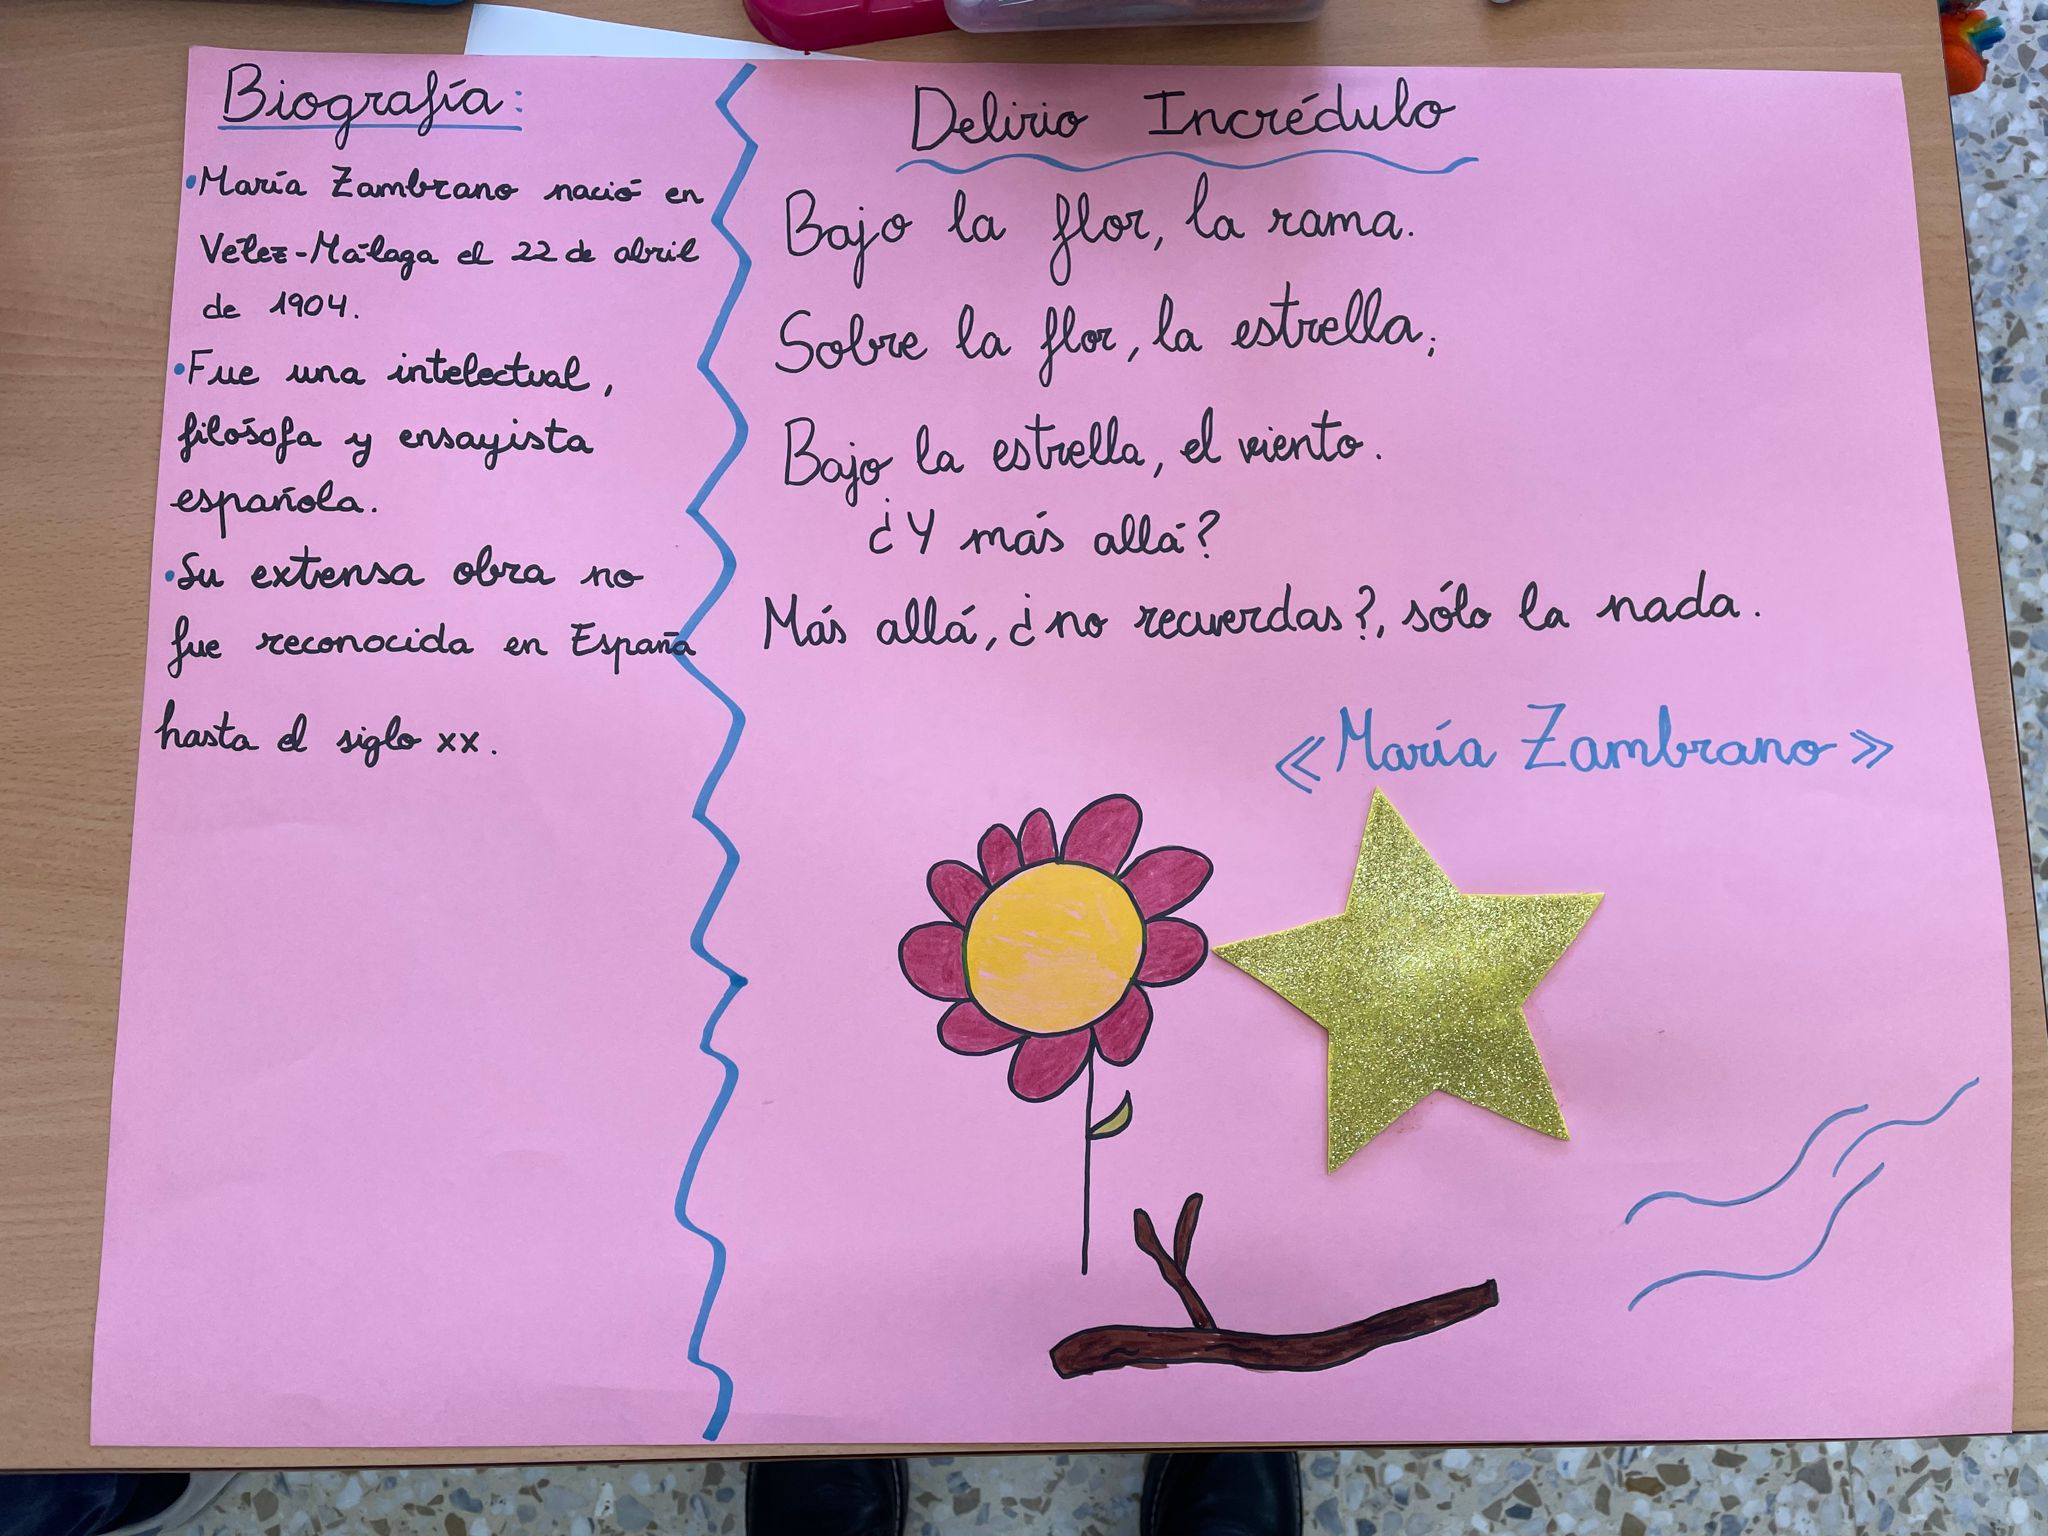 Biografía:
•María Zambrano nació en
Vélez-Málaga el 22 de abril
de 1904.
•Fue una intelectual,
filósofa y ensayista
española.
•Su extensa obra no
fue reconocida en España
hasta el siglo xx.
Delirio Incrédulo
Bajo la flor, la rama.
Sobre la flor, la estrella;
Bajo la estrella, el viento.
¿Y más allá?
Más allá, ¿no recuerdas?, sólo la nada.
«María Zambrano»